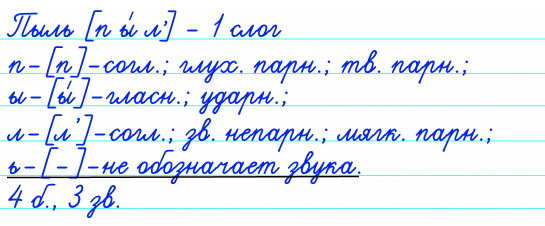 Пыль [п ы́ л’] – 1 слог
п – [п] – согл.; глух. парн.; тв. парн.;
ы – [ы́] – гласн.; ударн.;
л – [л’] – согл.; зв. непарн.; мягк. парн.;
ь – [–] – не обозначает звука.
4 б., 3 зв.